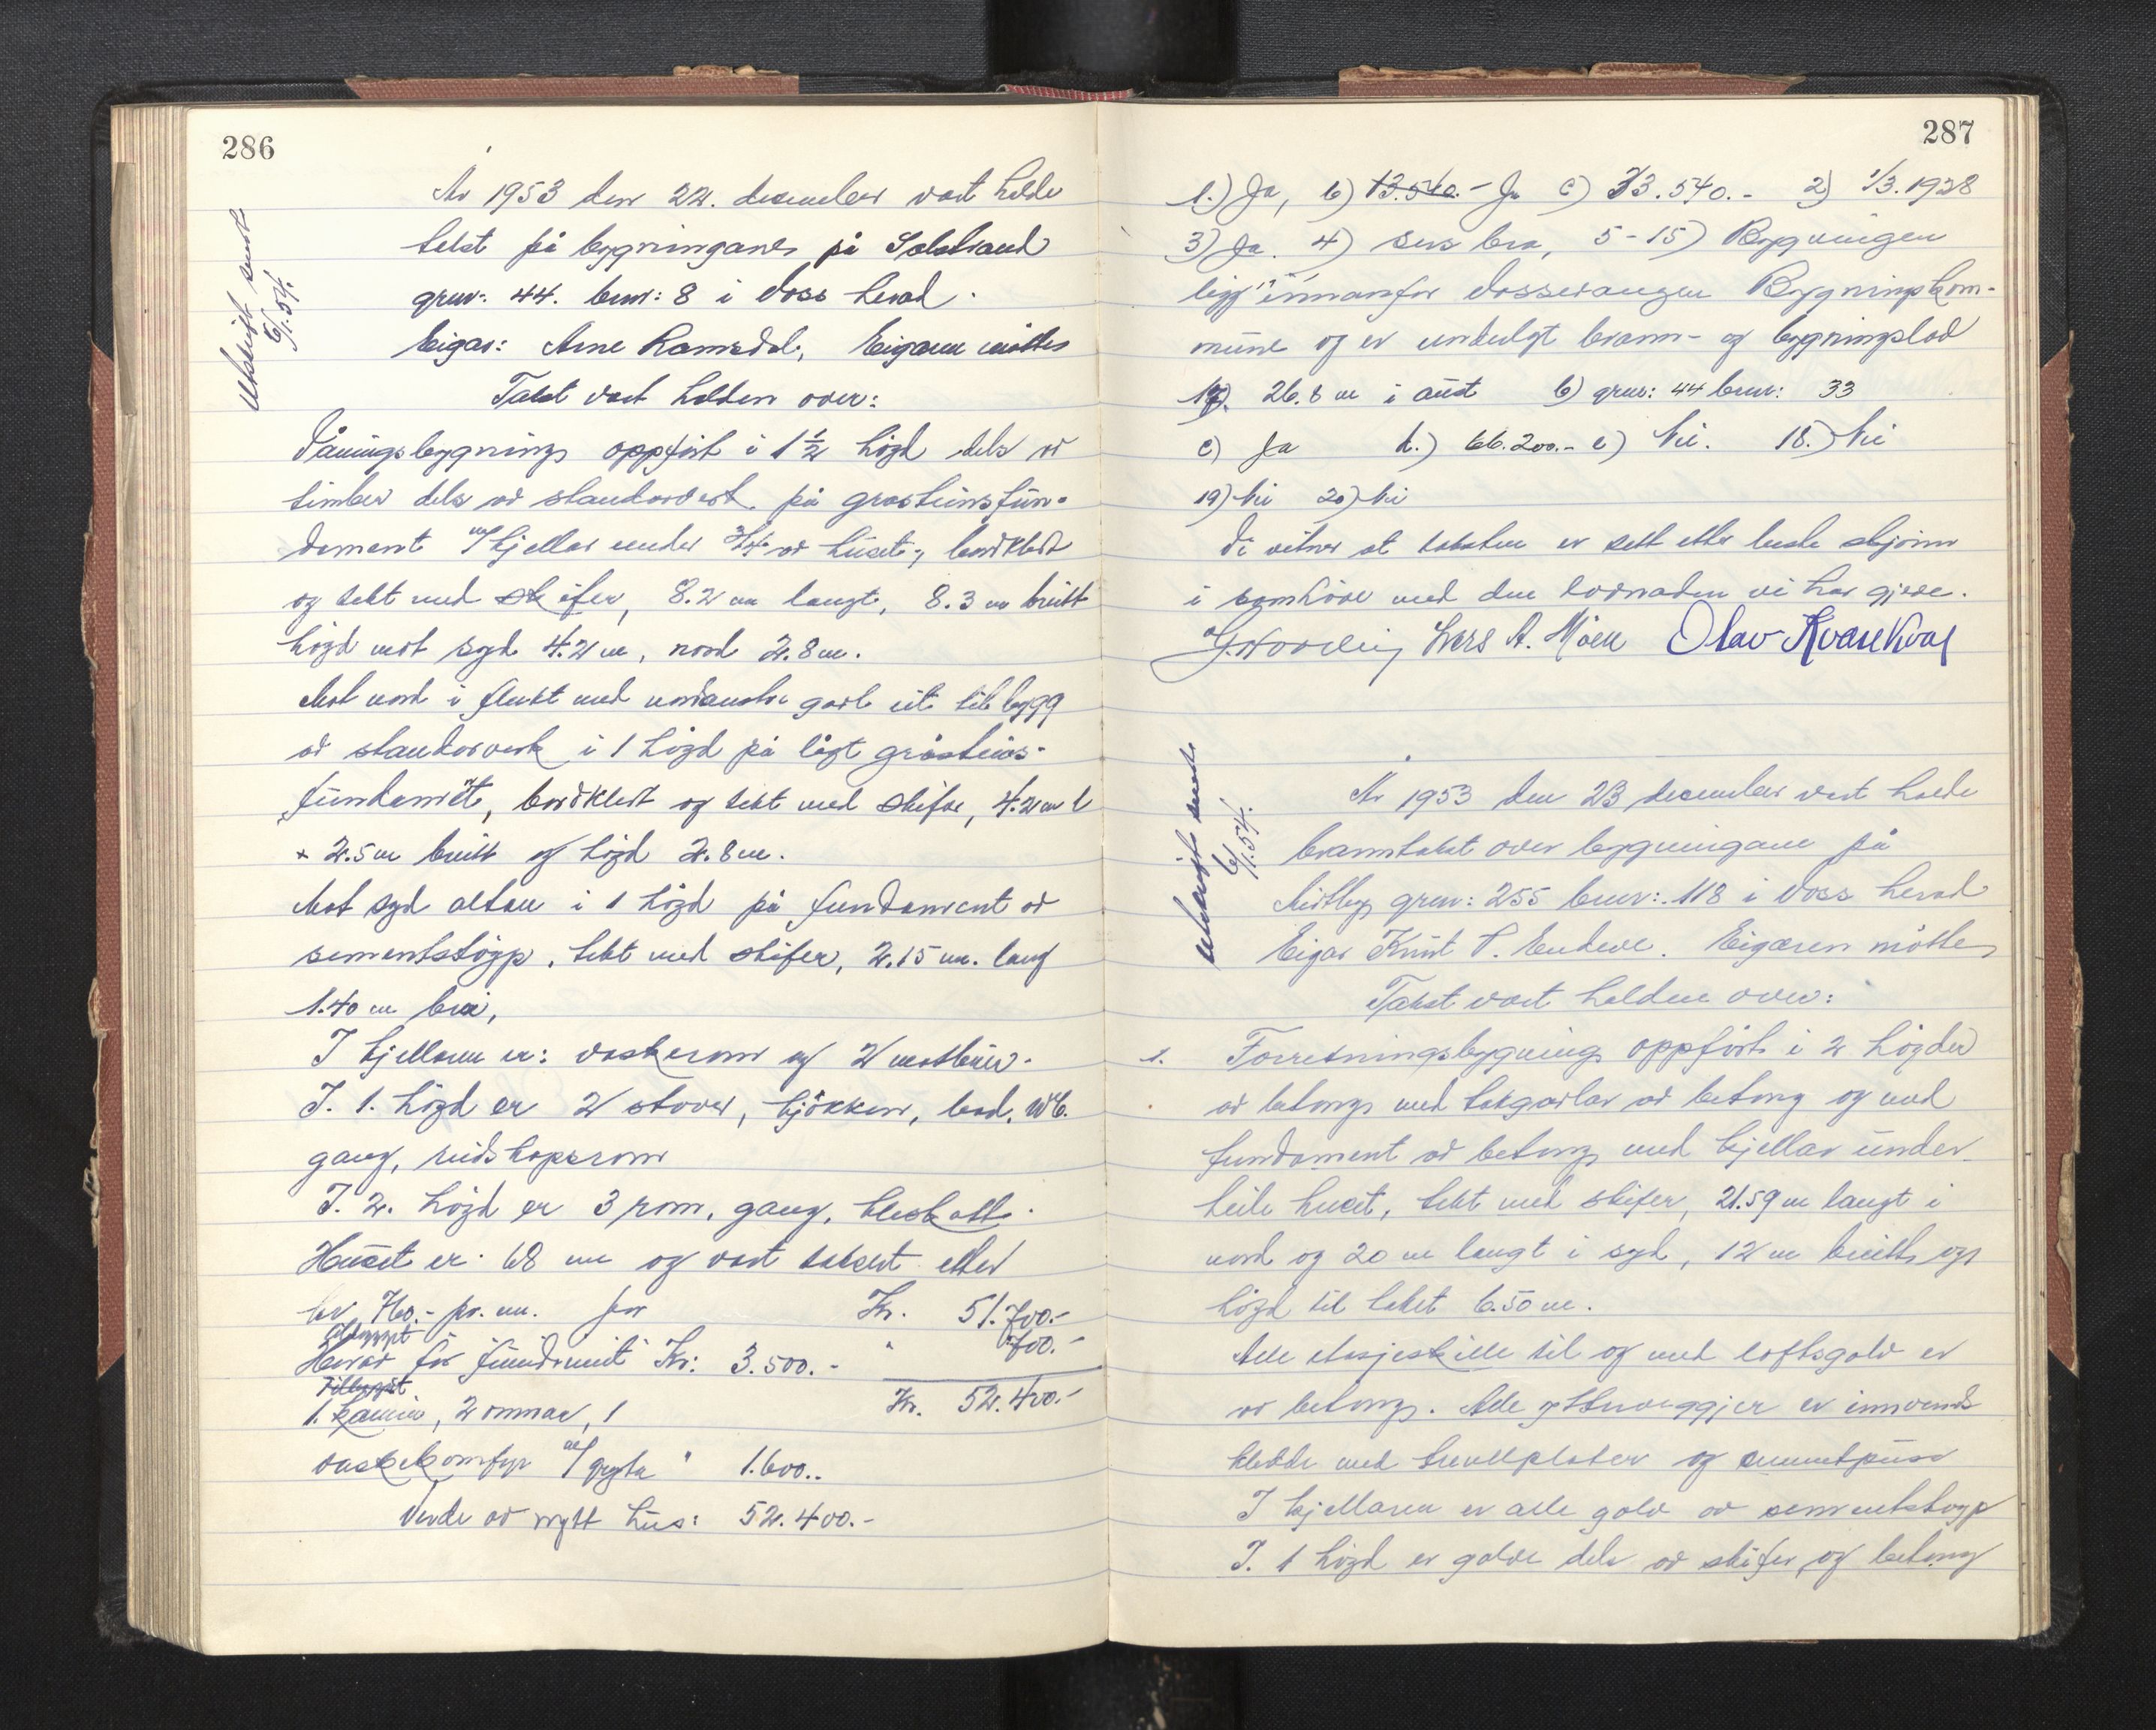 286
Utskrift sendt
6/1.54.
År 1953 den 22. desember vart halde
takst på bygningane på Solstrand
gnr: 44. bnr: 8 i Voss herad.
Eigar: Arne Ramsdal, Eigaren møtte
Takst vart halden over:
Våningsbygning oppført i 1 1/2 høgd dels av
timber dels av standarverk på gråsteinsfun-
dament m/kjellar under 3/4 av huset, bordkledt
og tekt med skifer, 8.2 m langt, 8.3 m breitt
høgd mot syd 4.2 m, nord 2.8 m.
Mot nord i flukt med nordaustre gavl eit tilbygg
av standarverk i 1 høgd på lågt gråsteins-
fundament, bordkledt og tekt med skifer, 4.2 m l
x 2.5 m breitt og høgd 2.8 m.
Mot syd altan i 1 høgd på fundament av
sementstøyp, tekt med skifer, 2.15 m. lang
1.40 m brei,
I kjellaren er: vaskerom og 2 matbuer.
I. 1. høgd er 2 stover, kjøkken, bad, WC.
gang, reidskapsrom
I. 2. høgd er 3 rom, gang, kleskott.
Huset er 68 m og vart taksert etter
kr 760.- pr. m. for Kr. 51.700.-
Tilbygget " 700.-
Herav for fundament Kr: 3.500.-
Tillegget Kr. 52.400.-
1. kamin, 2 omnar, 1
vaskekomfyr m/gryta " 1.600..
Verde av nytt hus: 52.400.-
287
1.) Ja, b) 13.540.- Ja c) 33.540.- 2) 1/3.1928
3) Ja. 4) Sers bra, 5-15) Bygningen
ligg innanfor Vossevangen Bygningskom-
mune og er underlagt brann- og bygningslov
17). 26.8 m i aust b) gnr: 44 bnr: 33
c) Ja d.) 66.200.- e) Nei. 18.) Nei
19) Nei 20) Nei
Vi vitnar at taksten er sett etter beste skjønn
i samhøve med den lovnaden vi har gjeve.
Lars A. Möen Olav Kvarekval
Utskrift sendt
6/1.54.
År 1953 den 23 desember vart halde
branntakst over bygningane på
gnr: 255 bnr: 118 i Voss herad
Eigar Knut P. Endeve. Eigaren møtte,
Takst vart halden over:
1. Forretningsbygning oppført i 2 høgder
av betong med takgavlar av betong og med
fundament av betong med kjellar under
heile huset, tekt med skifer, 21.59 m langt i
nord og 20 m langt i syd, 12 m breitt og
høgd til taket 6.50 m.
Alle etasjeskille til og med loftsgolv er
av betong. Alle ytterveggjer er innvendi
kledde med treullplater og sementpuss
I kjellaren er alle golv av sementstøyp
I. 1 høgd er golva dels av skifer og betong